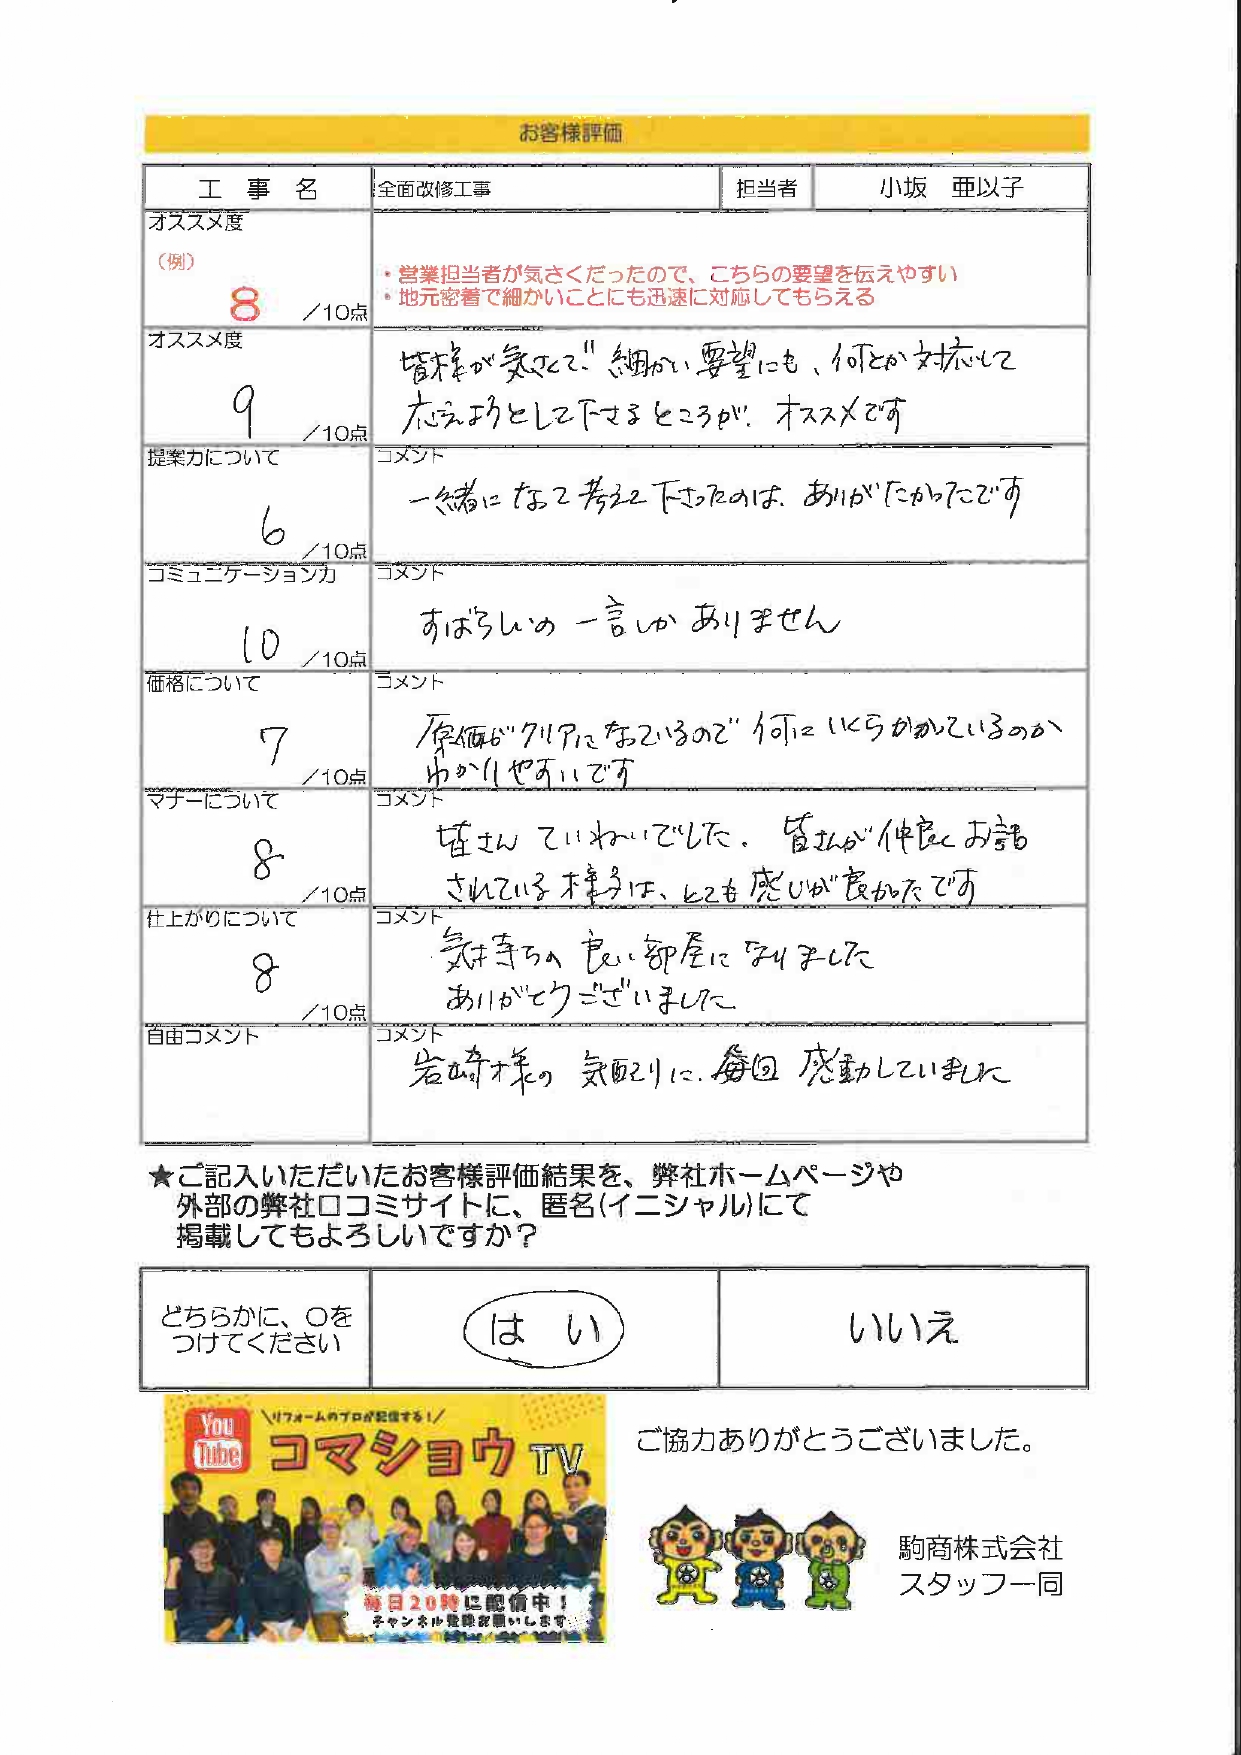 お客様評価
工 事 名 全面改修工事 担当者 小坂 亜以子
オススメ度
(例)
8 /10点
・営業担当者が気さくだったので、こちらの要望を伝えやすい
・地元密着で細かいことにも迅速に対応してもらえる
オススメ度
9 /10点
皆様が気さくで!!細かい要望にも、何とか対応して
応えようとして下さるところが、オススメです
提案力について
6 /10点
コメント
一緒になって考えて下さったのは、ありがたかったです
コミュニケーション力
10 /10点
コメント
すばらしいの一言しかありません
価格について
7 /10点
コメント
原価がクリアになっているので何にいくらかかっているのか
わかりやすいです
マナーについて
8 /10点
コメント
皆さんていねいでした。皆さんが仲良くお話
されている様子は、とても感じが良かったです
仕上がりについて
8 /10点
コメント
気持ちの良い部屋になりました
ありがとうございました
自由コメント
コメント
岩崎様の気配りに、毎回感動していました
★ご記入いただいたお客様評価結果を、弊社ホームページや
外部の弊社口コミサイトに、匿名(イニシャル)にて
掲載してもよろしいですか?
どちらかに、○を
つけてください
はい
いいえ
You
Tube
\リフォームのプロが配信する!/
コマショウTV
毎日20時に配信中!
チャンネル登録お願いします
ご協力ありがとうございました。
駒商株式会社
スタッフ一同